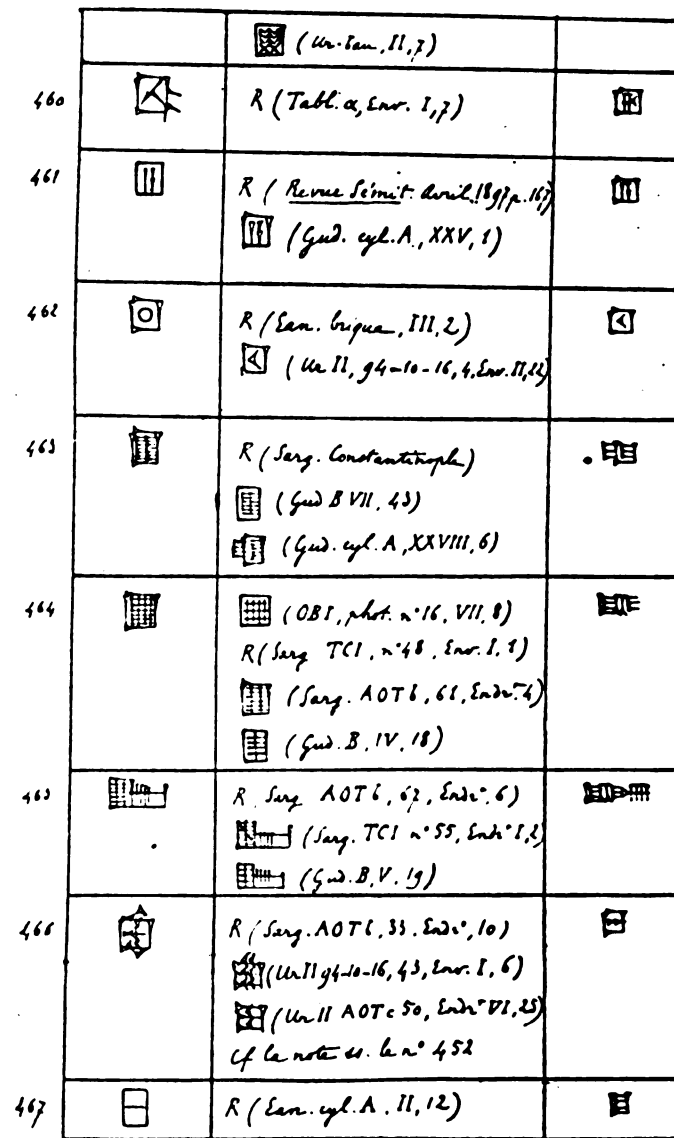 (Ur-Bau, II, 7)
460 R (Tabl. α, Env. I, 7)
461 R (Revue Sémit. Avril 1897 p. 167)
(Gud. cyl. A, XXV, 1)
462 R (Ean. brique, III, 2)
(Ur II, 94-10-16, 4, Env. II, 22)
463 R (Sarg. Constantinople)
(Gud B VII, 43)
(Gud. cyl. A, XXVIII, 6)
464 (OBI, phot. n° 16, VII, 8)
R (Sarg TCI, n° 48, Env. I, 1)
(Sarg. AOTb, 61, Endr. 4)
(Gud. B, IV, 18)
465 R Sarg AOTb, 67, Endr, 6)
(Sarg. TCI n° 55, Endr I, 2)
(Gud. B, V, 19)
466 R (Sarg. AOTb, 33, Endr, 10)
(Ur II 94-10-16, 43, Env. I, 6)
(Ur II AOTc 50, Endr VI, 25)
cf la note ss. le n° 452
467 R (Ean. cyl. A, II, 12)